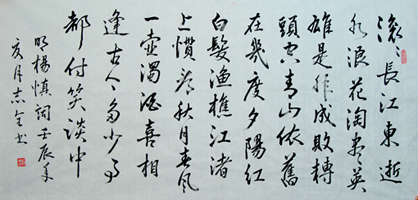 滚々長江東逝
水浪花淘尽英
雄是非成敗轉
頭空青山依舊
在幾度夕陽紅
白髮漁樵江渚
上慣看秋月春風
一壶濁酒喜相
逢古今多少事
都付笑談中
明楊慎詞壬辰年
亥月志全书